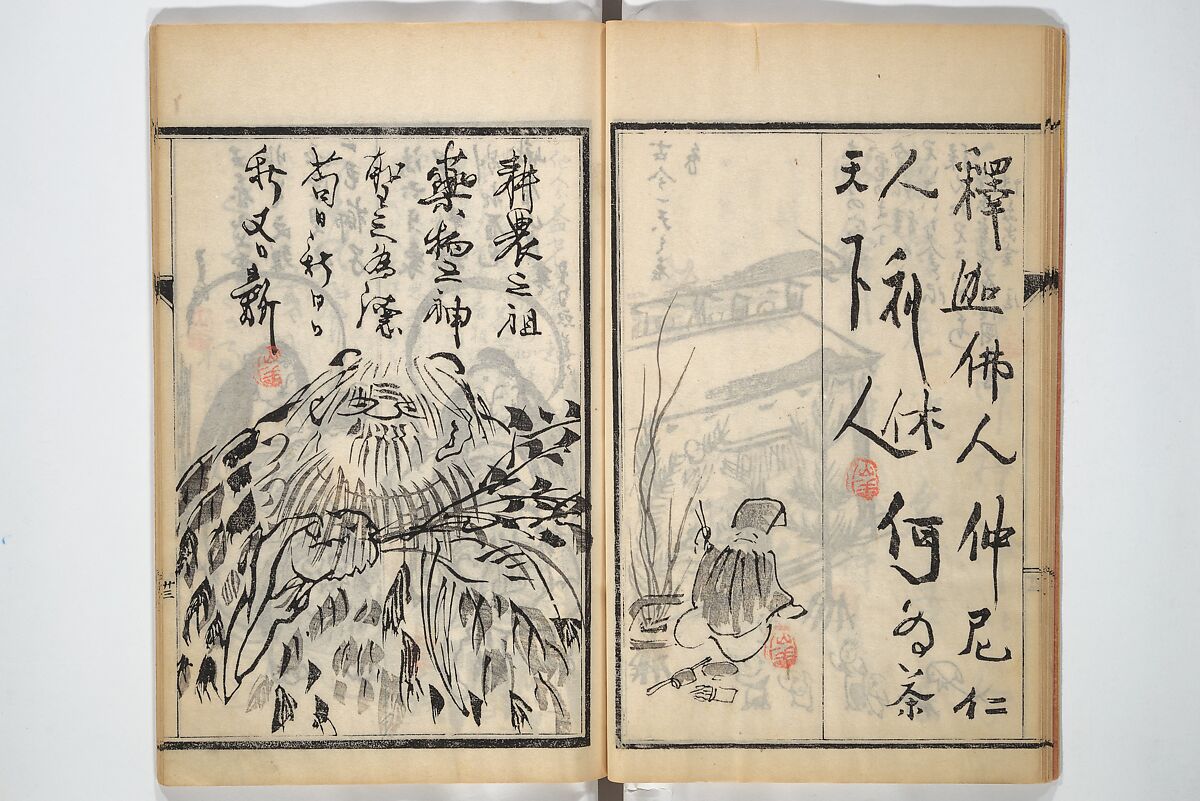 釋迦佛人仲尼仁
人利休何為茶
天下人
耕農之祖
藥物之神
聖之為
苟日新日日
新又日新
廿三